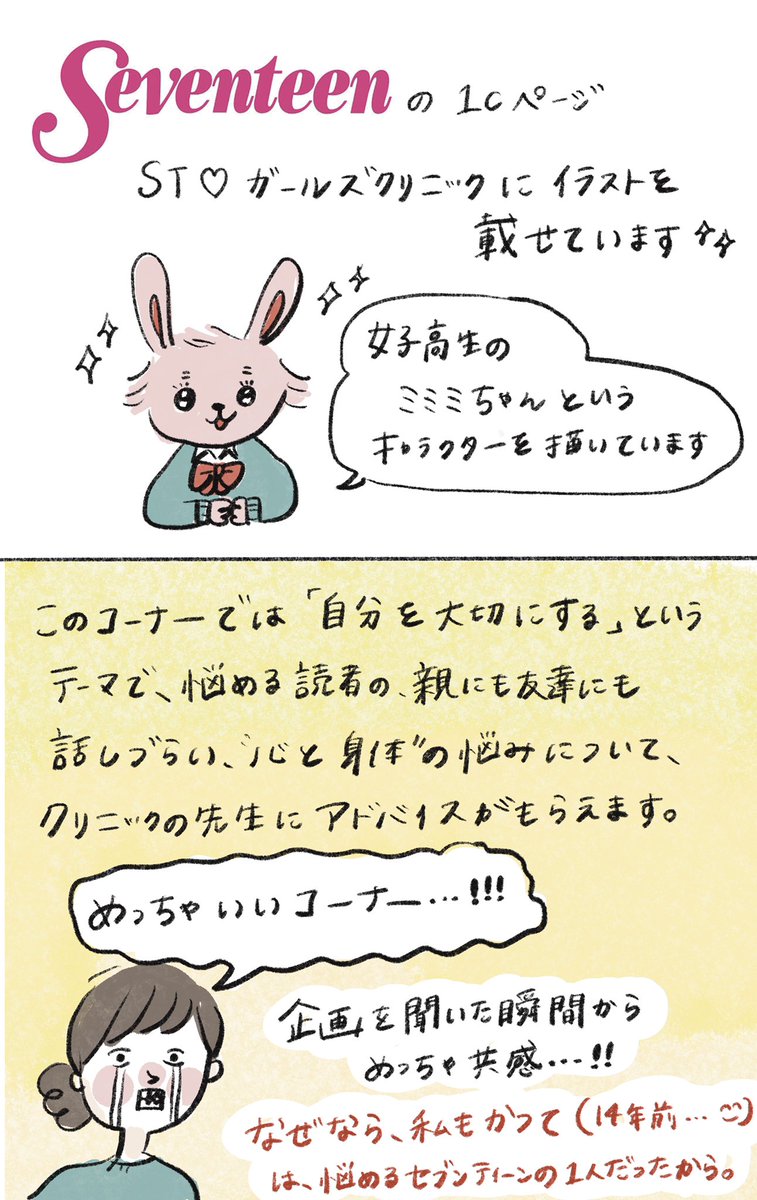 Seventeenの1cページ
ST♡ガールズクリニックにイラストを
載せています
女子高生の
ミミミちゃんという
キャラクターを描いています
このコーナーでは「自分を大切にする」という
テーマで、悩める読者の、親にも友達にも
話しづらい、"心と身体"の悩みについて、
クリニックの先生にアドバイスがもらえます。
めっちゃいいコーナー…!!!
企画を聞いた瞬間から
めっちゃ共感…!!
なぜなら、私もかつて(14年前…)
は、悩めるセブンティーンの1人だったから。